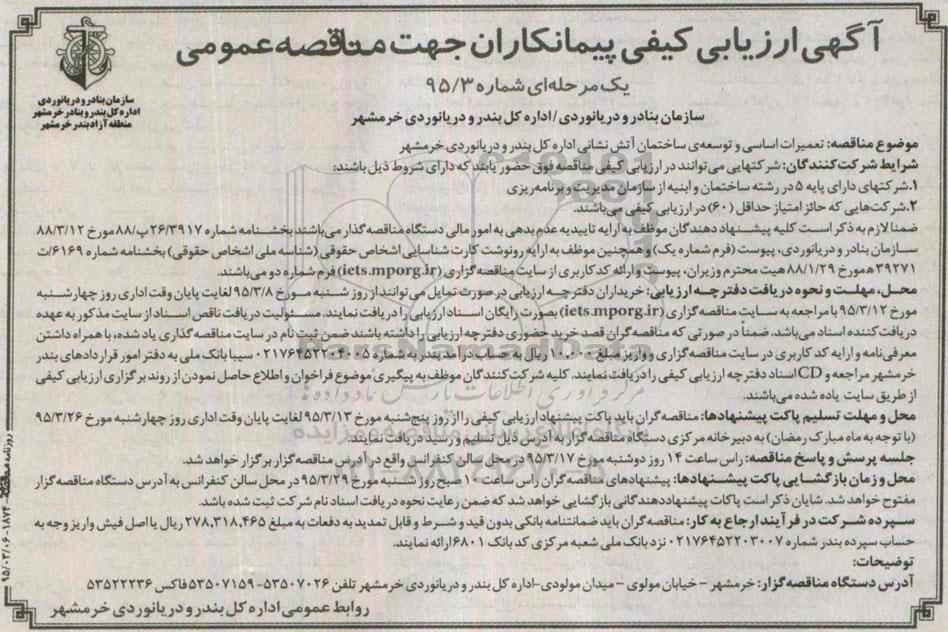 آگهی ارزیابی کیفی پیمانکاران جهت مناقصه عمومی
یک مرحله‌ای شماره ۹۵/۳
سازمان بنادر و دریانوردی/اداره کل بندر و دریانوردی خرمشهر
سازمان بنادر و دریانوردی
اداره کل بندر و بنادر خرمشهر
منطقه آزاد بندر خرمشهر
موضوع مناقصه: تعمیرات اساسی و توسعه‌ی ساختمان آتش نشانی اداره کل بندر و دریانوردی خرمشهر
شرایط شرکت کنندگان: شرکتهایی می‌توانند در ارزیابی کیفی مناقصه فوق حضور یابند که دارای شروط ذیل باشند:
۱.شرکتهای دارای پایه ۵ در رشته ساختمان و ابنیه از سازمان مدیریت و برنامه‌ریزی
۲.شرکت‌هایی که حائز امتیاز حداقل (۶۰) در ارزیابی کیفی می‌باشند.
ضمنا لازم به ذکر است کلیه پیشنهاد دهندگان موظف به ارایه تاییدیه عدم بدهی به امور مالی دستگاه مناقصه گذار می‌باشند بخشنامه شماره ۲۶/۳۹۱۷پ/۸۸ مورخ ۸۸/۳/۱۲
سازمان بنادر و دریانوردی، پیوست (فرم شماره یک) و همچنین موظف به ارایه رونوشت کارت شناسایی اشخاص حقوقی (شناسه ملی اشخاص حقوقی) بخشنامه شماره ۶۱۶۹/ت
۳۹۲۷۱ ه مورخ ۸۸/۱/۲۹ هیت محترم وزیران، پیوست و ارائه کد کاربری از سایت مناقصه گزاری (iets.mporg.ir) فرم شماره دو می‌باشند.
محل، مهلت و نحوه دریافت دفترچه ارزیابی: خریداران دفترچه ارزیابی در صورت تمایل می‌توانند از روز شنبه مورخ ۹۵/۳/۸ لغایت پایان وقت اداری روز چهارشنبه
مورخ ۹۵/۳/۱۲ با مراجعه به سایت مناقصه گزاری (iets.mporg.ir) بصورت رایگان اسناد ارزیابی را دریافت نمایند. مسئولیت دریافت ناقص اسناد از سایت مذکور به عهده
دریافت کننده اسناد می‌باشد. ضمناً در صورتی که مناقصه گران قصد خرید حضوری دفترچه ارزیابی را داشته باشند ضمن ثبت نام در سایت مناقصه گذاری یاد شده، با همراه داشتن
معرفی نامه و ارایه کد کاربری در سایت مناقصه گزاری و واریز مبلغ ۱۰۰.۰۰۰ ریال به حساب درآمد بندر به شماره ۰۲۱۷۶۴۵۲۲۰۴۰۰۵ سیبا بانک ملی به دفتر امور قراردادهای بندر
خرمشهر مراجعه و CD اسناد دفترچه ارزیابی کیفی را دریافت نمایند. کلیه شرکت کنندگان موظف به پیگیری موضوع فراخوان و اطلاع حاصل نمودن از روند برگزاری ارزیابی کیفی
از طریق سایت یاده شده می‌باشند.
محل و مهلت تسلیم پاکت پیشنهادها: مناقصه گران باید پاکت پیشنهاد ارزیابی کیفی را از روز پنج‌شنبه مورخ ۹۵/۳/۱۳ لغایت پایان وقت اداری روز چهارشنبه مورخ ۹۵/۳/۲۶
(با توجه به ماه مبارک رمضان) به دبیرخانه مرکزی دستگاه مناقصه گزار به آدرس ذیل تسلیم و رسید دریافت نمایند.
جلسه پرسش و پاسخ مناقصه: راس ساعت ۱۴ روز دوشنبه مورخ ۹۵/۳/۱۷ در محل سالن کنفرانس واقع در آدرس مناقصه گزار برگزار خواهد شد.
محل و زمان بازگشایی پاکت پیشنهادها: پیشنهادهای مناقصه گران راس ساعت ۱۰ صبح روز شنبه مورخ ۹۵/۳/۲۹ در محل سالن کنفرانس به آدرس دستگاه مناقصه گزار
مفتوح خواهد شد. شایان ذکر است پاکات پیشنهاددهندگانی بازگشایی خواهد شد که ضمن رعایت نحوه دریافت اسناد نام شرکت ثبت شده باشد.
سپرده شرکت در فرآیند ارجاع به کار: مناقصه گران باید ضمانتنامه بانکی بدون قید و شرط و قابل تمدید به دفعات به مبلغ ۲۷۸,۳۱۸,۴۶۵ ریال یا اصل فیش واریز وجه به
حساب سپرده بندر شماره ۰۲۱۷۶۴۵۲۲۰۳۰۰۷ نزد بانک ملی شعبه مرکزی کد بانک ۶۸۰۱ ارائه نمایند.
توضیحات:
آدرس دستگاه مناقصه گزار: خرمشهر – خیابان مولوی – میدان مولودی-اداره کل بندر و دریانوردی خرمشهر تلفن ۵۳۵۰۷۰۲۶-۵۳۵۰۷۱۵۹ فاکس ۵۳۵۲۲۲۳۶
روابط عمومی اداره کل بندر و دریانوردی خرمشهر
ParsNamadData
مرکز فرآوری اطلاعات پارس نماد داده ها
۰۲۱-۸۸۳۴۹۶۷۰-۵
روزنامه مناقصه ۱۸۷۴ - ۹۵/۰۳/۰۶